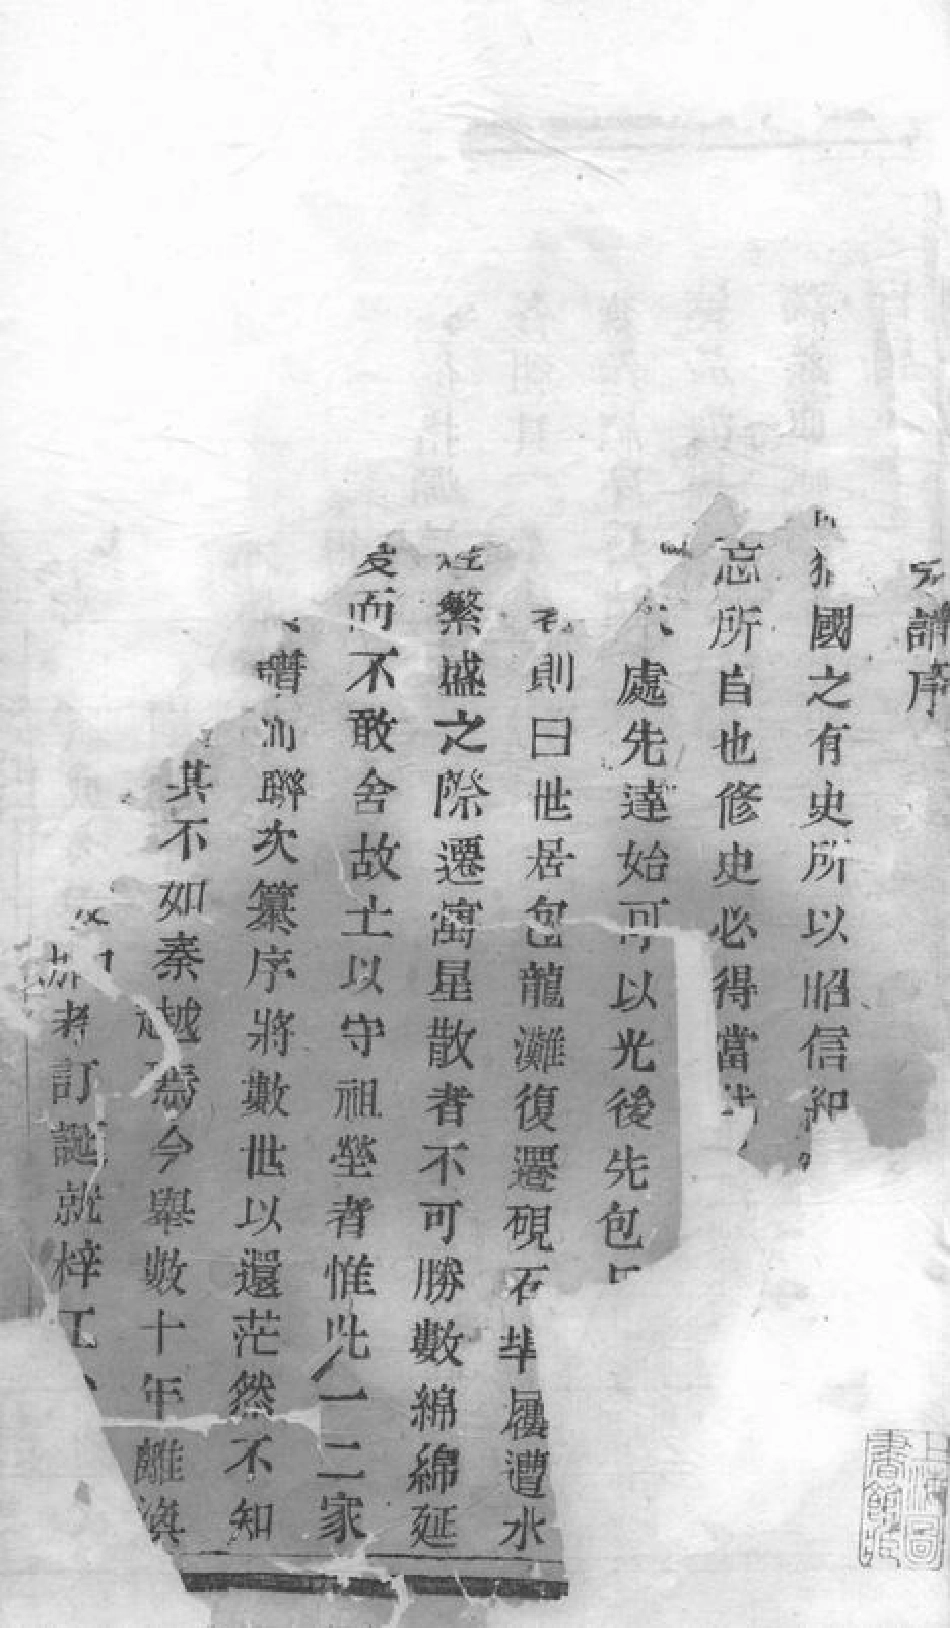 譜序
猶國之有史所以昭信
忘所自也修史必得當
處先達始可以光後先包
則曰世居包龍灘復遷硯石犖屢遭水
繁盛之際遷寓星散者不可勝數綿綿延
而不敢舍故土以守祖塋者惟此一二家
譜而聯次纂序將數世以還茫然不知
其不如秦越焉今舉數十年離渙
考訂誕就梓工
上海圖書館藏